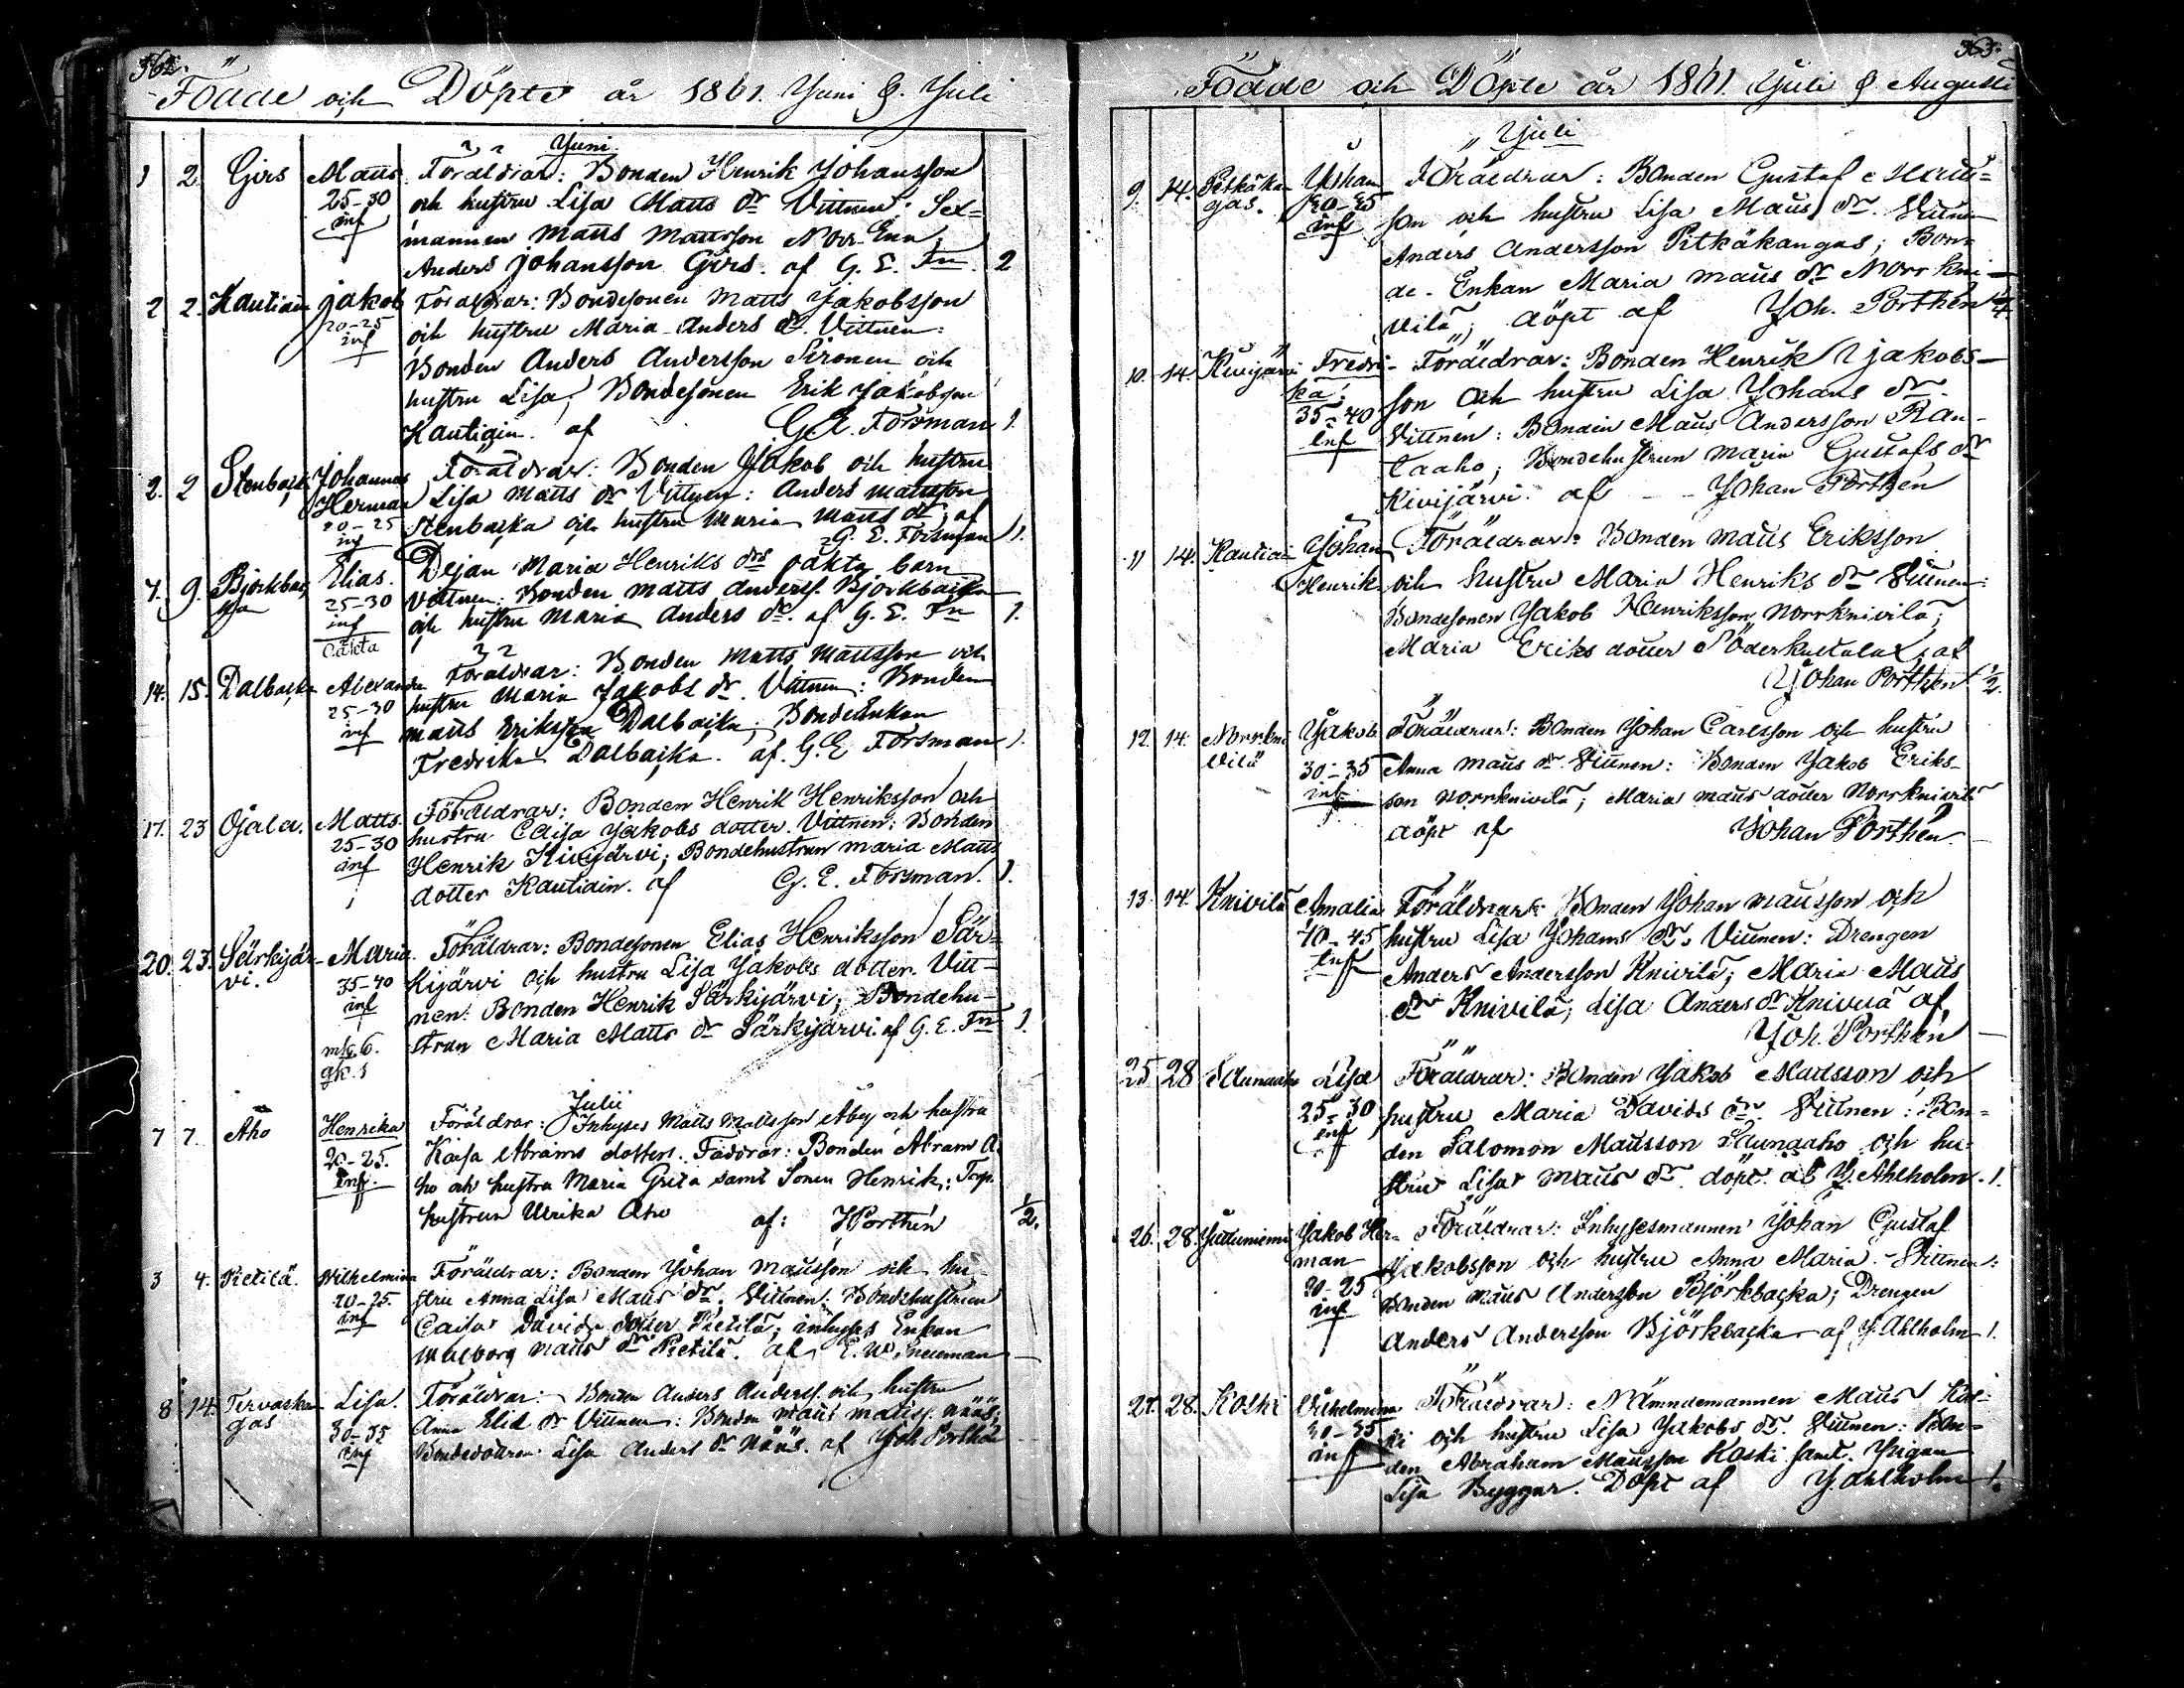 362.
Födde och Döpte år 1861. Juni & Juli
Juni
1 2. Girs Matts. Föräldrar: Bonden Henrik Johansson
25-30 och hustru Lisa Matts dr Vittnen: Sex=
inf mannen Matts Mattsson Norr-Ena;
Anders Johansson Girs. af G. E. Fn. 2
2 2. Kautiain Jakob Föräldrar: Bondesonen Matts Jakobsson
20-25 och hustru Maria Anders dr. Vittnen:
inf Bonden Anders Andersson Sironen och
hustru Lisa; Bondesonen Erik Jakobsson
Kautiain. af G. E. Forsman 1.
2. 2 Stenbacka Johannes Föräldrar: Bonden Jakob och hustru
Herman Lisa Matts dr Vittnen: Anders Mattsson
20-25 Stenbacka och hustru Maria Matts dr, af
inf G. E. Forsman 1.
7. 9. Björkbac Elias. Dejan Maria Henriks drs oäkta barn
ka 25-30 Vittnen: Bonden Matts Anderss. Björkbacka
inf och hustru Maria Anders dr. af G. E. Fn 1.
oäkta
14. 15. Dalbacka Alexander Föräldrar: Bonden Matts Mattsson och
25-30 hustru Maria Jakobs dr. Vittnen: Bonden
inf Matts Eriksson Dalbacka; BondeEnkan
Fredrika Dalbacka. af. G. E Forsman 1.
17. 23 Ojala. Matts. Föräldrar: Bonden Henrik Henriksson och
25-30 hustru Caisa Jakobs dotter. Vittnen: Bonden
inf Henrik Kivijärvi; Bondehustrun Maria Matts
dotter Kautiain. af G. E. Forsman. 1.
20. 23. Särkijär- Maria. Föräldrar: Bondesonen Elias Henriksson Sär=
vi. 35-40 kijärvi och hustru Lisa Jakobs dotter. Vitt-
inf nen: Bonden Henrik Särkijärvi; Bondehu-
strun Maria Matts dr Särkijärvi. af G. E. Fn 1.
Julii
7 7. Aho Henrika Föräldrar: Inhyses Matts Mattsson Åby och hustru
20-25. Kaisa Abrams dotter. Faddrar: Bonden Abram A
inf. ho och hustru Maria Greta samt Sonen Henrik; Torp.
hustrun Ulrika Aho af: J Porthén 1/2.
3 4. Pietilä. Wilhelmina Föräldrar: Bonden Johan Mattsson och hu-
20-25. stru Anna Lisa Matts dr. Vittnen: Bondehustrun
inf Caisa Davids dotter Pietilä; inhyses Enkan
Walborg Matts dr Pietilä. af E. W. Sneuman
8 14. Tervakan Lisa. Föräldrar: Bonden Anders Anderss. och hustru
gas 30-35 Anna Elis dr Vittnen: Bonden Matts Matss. Nääs;
inf Bondedottren: Lisa Anders dr Nääs. af Joh Porthén
363.
Födde och Döpte år 1861. Juli & Augusti
Juli
9. 14. Pitkäkan Johan Föräldrar: Bonden Gustaf Matts=
gas. 20-25 son och hustru Lisa Matts dr. Vittnen
inf Anders Andersson Pitkäkangas; Bon=
de-Enkan Maria Matts dr Norr kni-
vilä; döpt af Joh. Porthén
10. 14. Kivijärvi Fredri- Föräldrar: Bonden Henrik Jakobs-
ka; son och hustru Lisa Johans dr.
35-40 Vittnen: Bonden Matts Andersson Ran-
inf taaho; Bondehustrun Maria Gustafs dr
Kivijärvi. af -- Johan Porthén
11 14. Kautiai Johan Föräldrar: Bonden Matts Eriksson
Henrik och hustru Maria Henriks dr Vittnen:
Bondesonen Jakob Henriksson Norrknivilä;
Maria Eriks dotter Söderkultalax; af
Johan Porthén 1/2.
12. 14. Norrkni Jakob. Föräldrar: Bonden Johan Carlsson och hustru
vilä 30-35 Anna Matts dr. Vittnen: Bonden Jakob Eriks-
inf son Norrknivilä; Maria Matts dotter Norrknivilä
döpt af Johan Porthén.
13. 14. Knivilä Amalia Föräldrar: Bonden Johan Mattsson och
40-45 hustru Lisa Johans dr. Vittnen: Drengen
inf Anders Andersson Knivilä; Maria Matts
dr Knivilä; Lisa Anders dr Knivilä af
Joh. Porthén
25 28 Saunaaho Lisa Föräldrar: Bonden Jakob Mattsson och
25-30 hustru Maria Davids dr. Vittnen: Bon=
inf den Salomon Mattsson Saunaaho och hu=
stru Lisa Matts dr. döpt. af J. Ahlholm. 1.
26. 28. Juttuniemi Jakob Her= Föräldrar: Inhysesmannen Johan Gustaf
man Jakobsson och hustru Anna Maria. Vittnen:
20-25 Bonden Matts Andersson Björkbacka; Drengen
inf Anders Andersson Björkbacka af J. Ahlholm 1.
27. 28. Koski Wilhelmina Föräldrar: Nämndemannen Matts Kos-
30-35 ki och hustru Lisa Jakobs dr. Vittnen: Bon=
inf den Abraham Mattsson Koski samt. Pigan
Lisa Byggar. Döpt af J. Ahlholm 1.